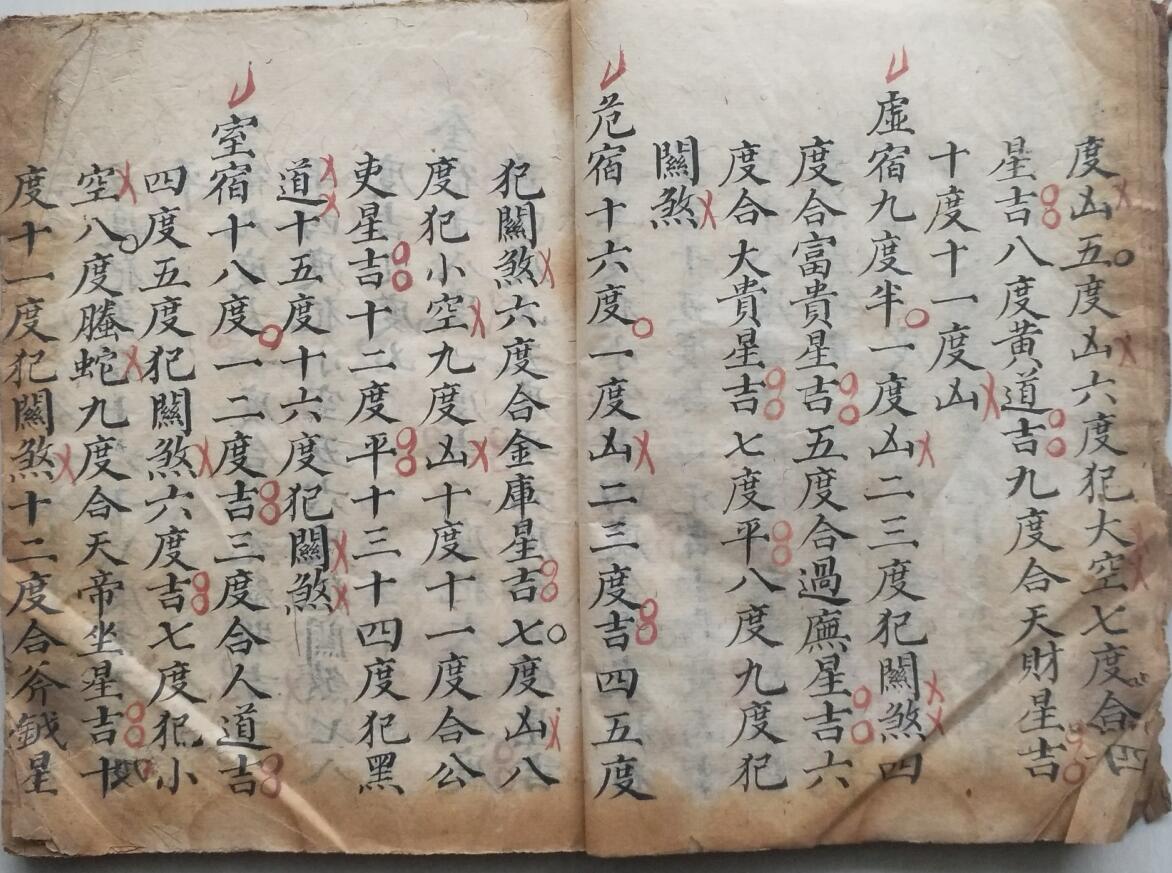 度凶五度凶六度犯大空七度合
星吉八度黃道吉九度合天財星吉
十度十一度凶
虛宿九度半一度凶二三度犯關煞四
度合富貴星吉五度合過廡星吉六
度合大貴星吉七度平八度九度犯
關煞
危宿十六度一度凶二三度吉四五度
犯關煞六度合金庫星吉七度凶八
度犯小空九度凶十度十一度合公
吏星吉十二度平十三十四度犯黑
道十五度十六度犯關煞
室宿十八度一二度吉三度合人道吉
四度五度犯關煞六度吉七度犯小
空八度螣蛇九度合天帝坐星吉十
度十一度犯關煞十二度合斧鉞星